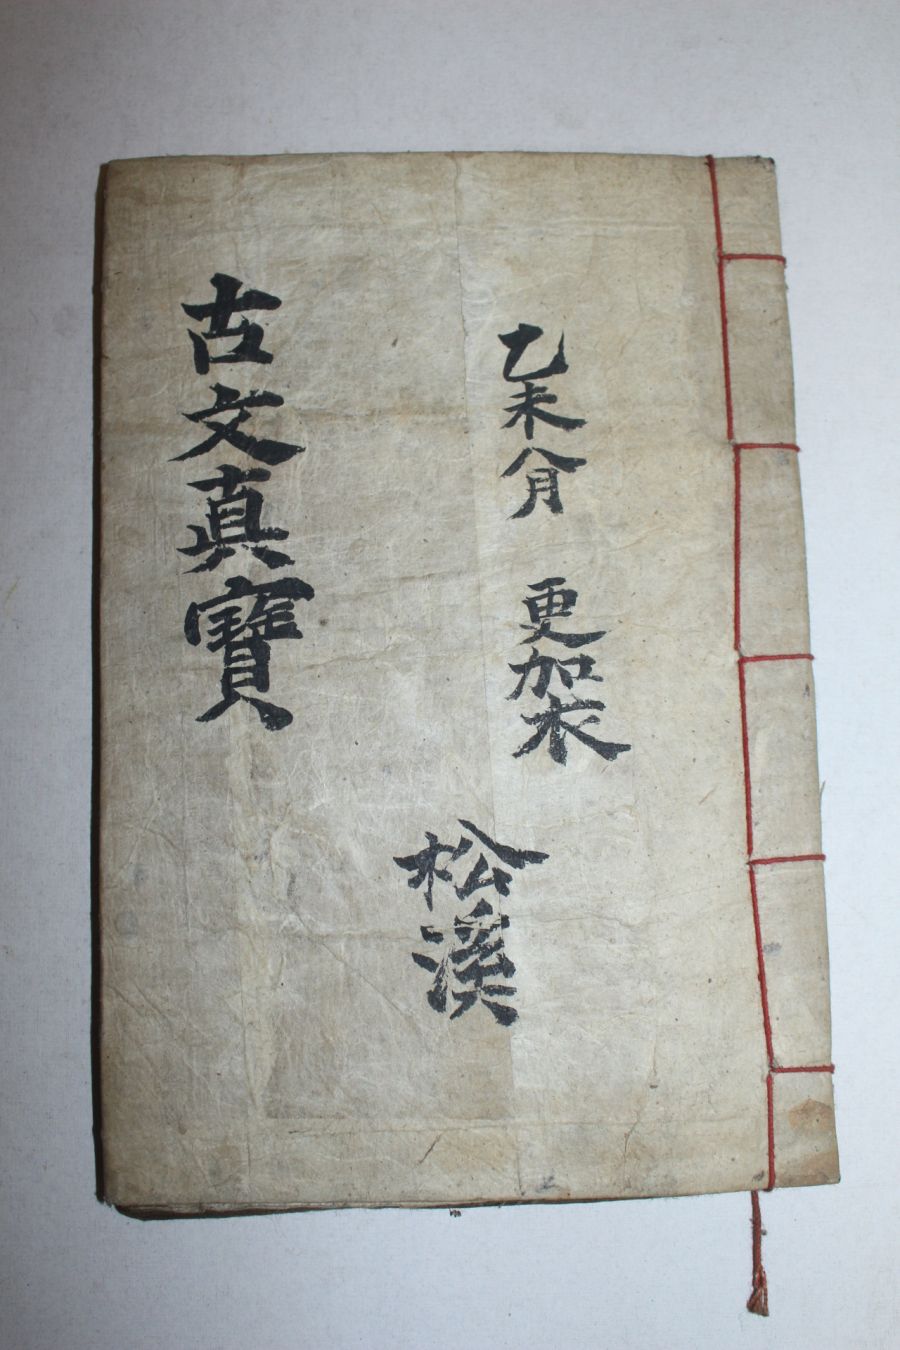 乙未八月 更加衣
松溪
古文真寶